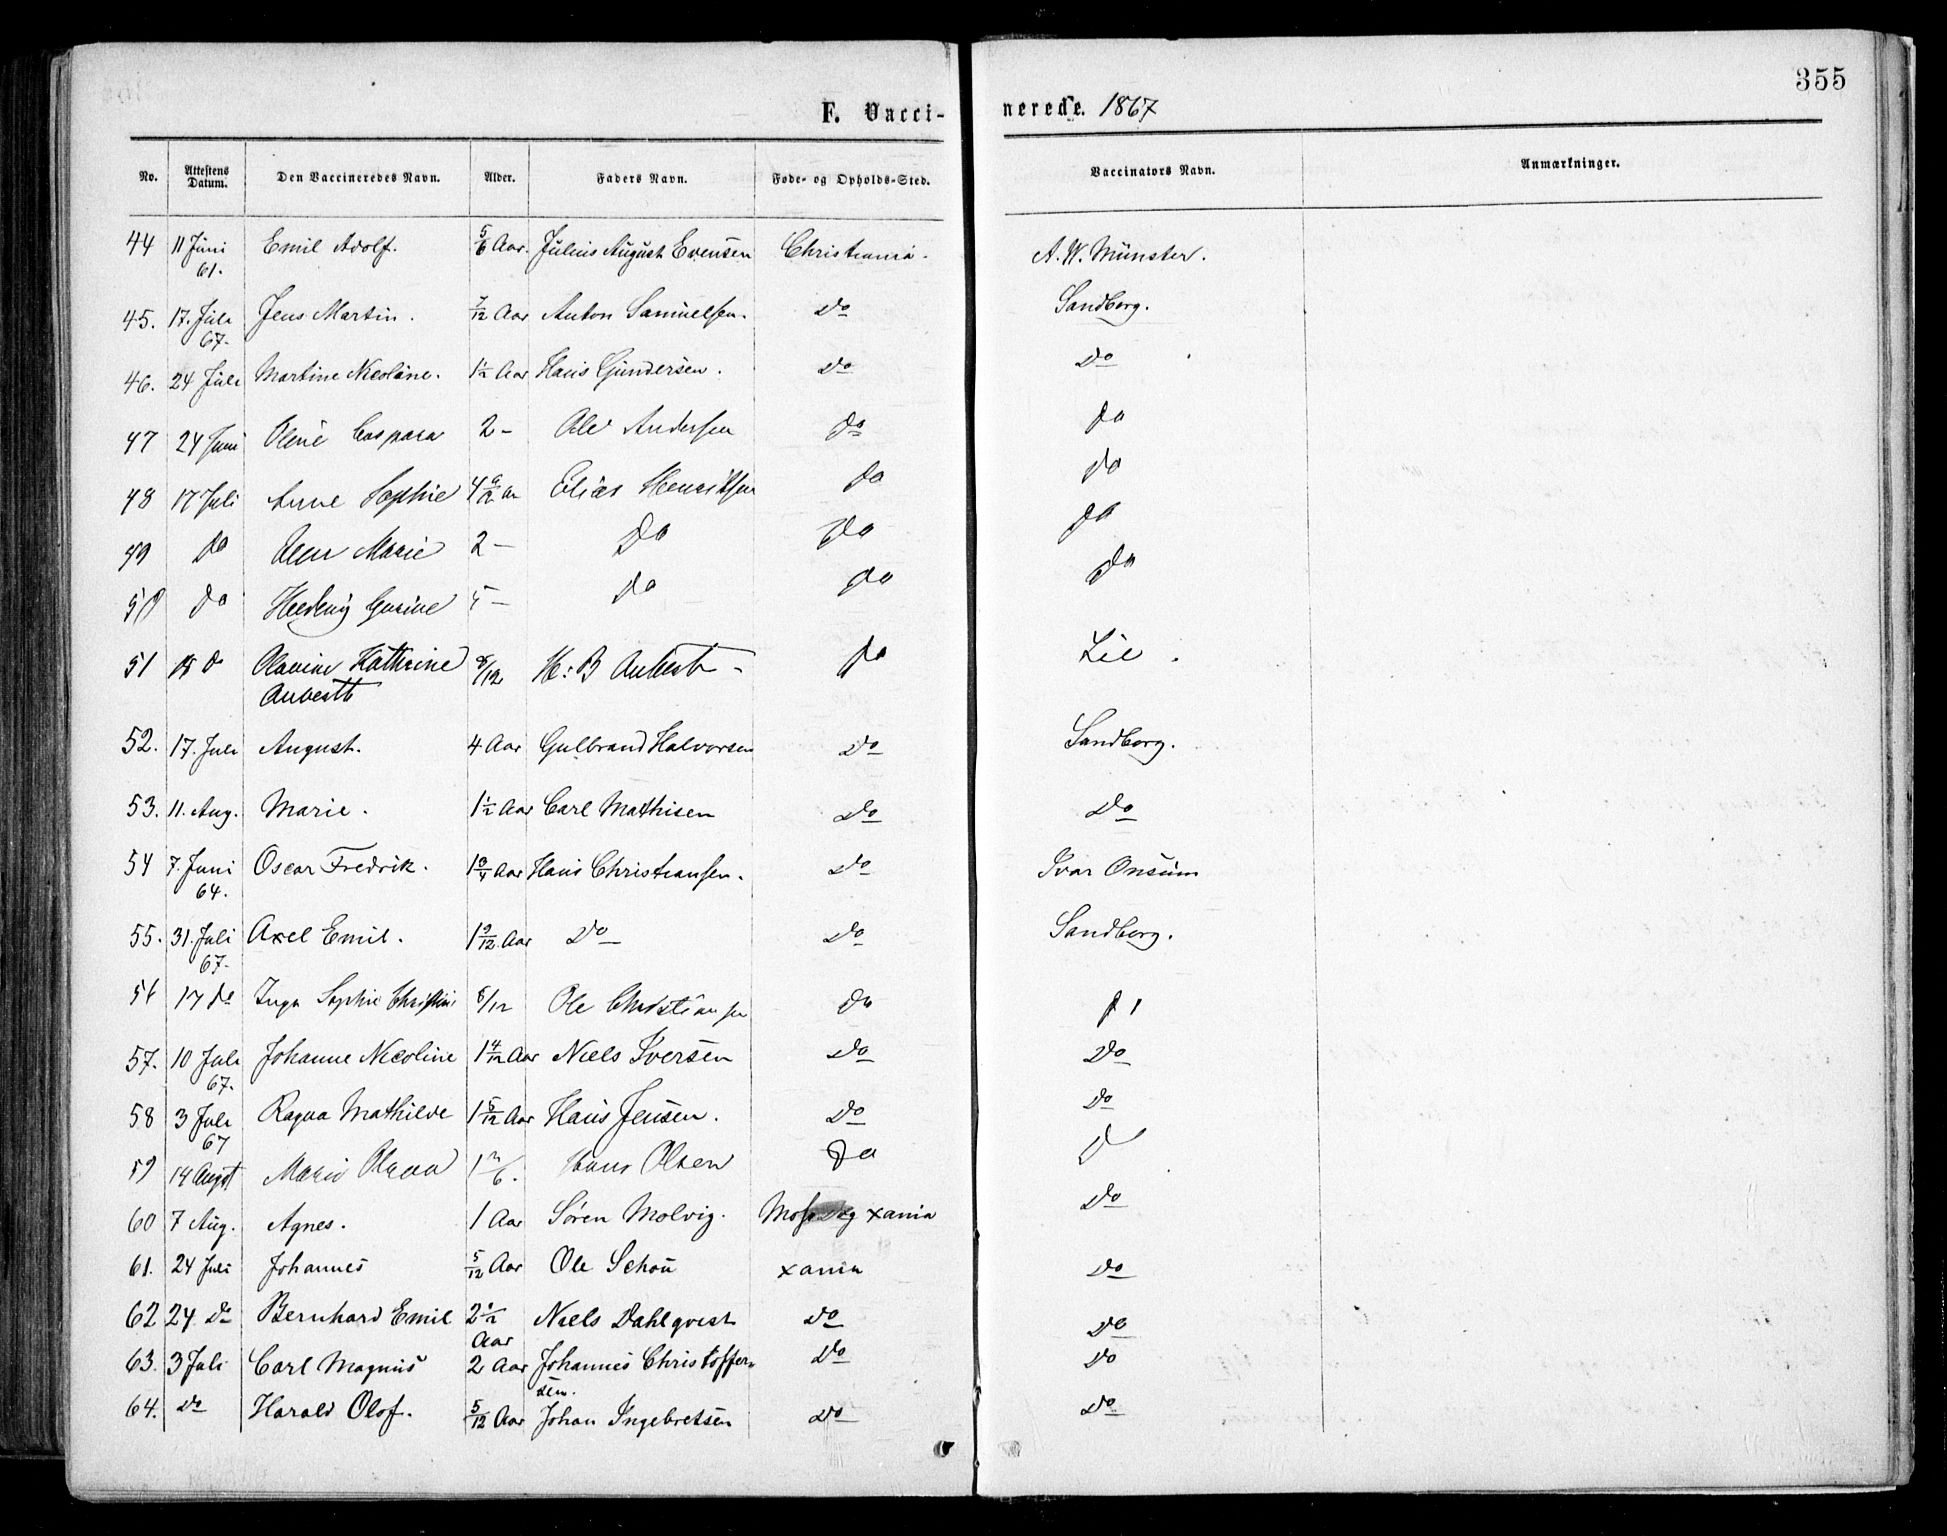 355
F. Vacci-nerede. 1867
No. Attestens Datum. Den Vaccineredes Navn. Alder. Faders Navn. Føde- og Opholds-Sted. Vaccinators Navn. Anmærkninger.
44 11 Juni 61. Emil Adolf. 5/6 Aar. Julius August Evensen Christiania. A. W. Münster.
45. 17. Juli 67. Jens Martin. 7/12 Aar Anton Samuelsen. Do Sandberg.
46. 24 Juli Martine Nicoline. 1½ Aar Hans Gundersen. Do Do
47 24 Juni Oline Caspara 2 - Ole Andersen do do
48 17 Juli Anne Sophie Elias Henriksen do do
49 do Marie 2 - Do Do do
50 do Hedevig Gurine 5 - do do do
51 18 do Olavine Kathrine 8/12 H: B Aubert - do Lie.
Aubert
52. 17. Juli August. 4 Aar Gulbrand Halvorsen Do Sandberg.
53. 11. Aug. Marie. 1½ Aar Carl Mathisen Do Do
54 7. Juni 64. Oscar Fredrik. Aar Hans Christiansen. Do Ivar Onsum
55. 31. Juli 67. Axel Emil. 1 9/12 Aar Do Do Sandberg.
56 17 do Inga Sophie Christine 8/12 Ole Christiansen do
57. 10 Juli 67. Johanne Nicoline 1 4/12 Aar Niels Iversen Do Do
58 3 Juli 67 Ragna Mathilde 1 5/12 Aar Hans Jensen. Do Do
59 14 August Marie Hans Olsen Do D
60 7 Aug. Agnes. 1 Aar Søren Molvig. Moss og xania Do
61. 24 Juli Johannes 5/12 Aar Ole Schou xania Do
62 24 Do Bernhard Emil 2½ Aar Niels Dahlqvist Do Do
63. 3 Juli Carl Magnus 2 Aar Johannes Christoffersen. Do Do
64. Do Harald Olof. 5/12 Aar Johan Ingebretsen Do Do